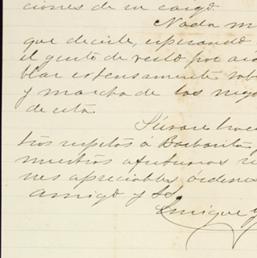 ciones de su cargo.
Nada m
que decirle, esperando
el gusto de verlo por
blar estensamente sob
y marcha de los neg
de esta.
Sírvase hace
tros respetos á
nuestros afectuosos
nes apreciables órdenes
amigo y SS.
Enrique